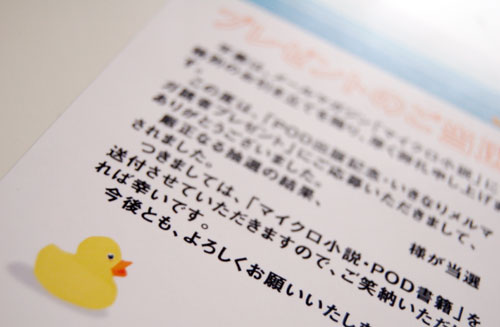 プレゼントのご当選
す。
この度は、「POD出版記念・いきなりメルマ
ガ読者プレゼント」にご応募いただきまして、
ありがとうございました。
厳正なる抽選の結果、
様が当選
されました。
つきましては、「マイクロ小説・POD書籍」を
送付させていただきますので、ご笑納いただ
れば幸いです。
今後とも、よろしくお願いいたしま